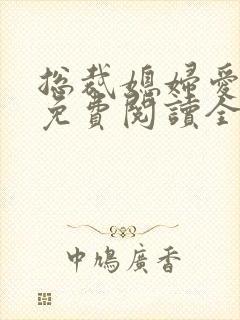 总裁媳婦爱
免費閱讀全
中鳩廣香